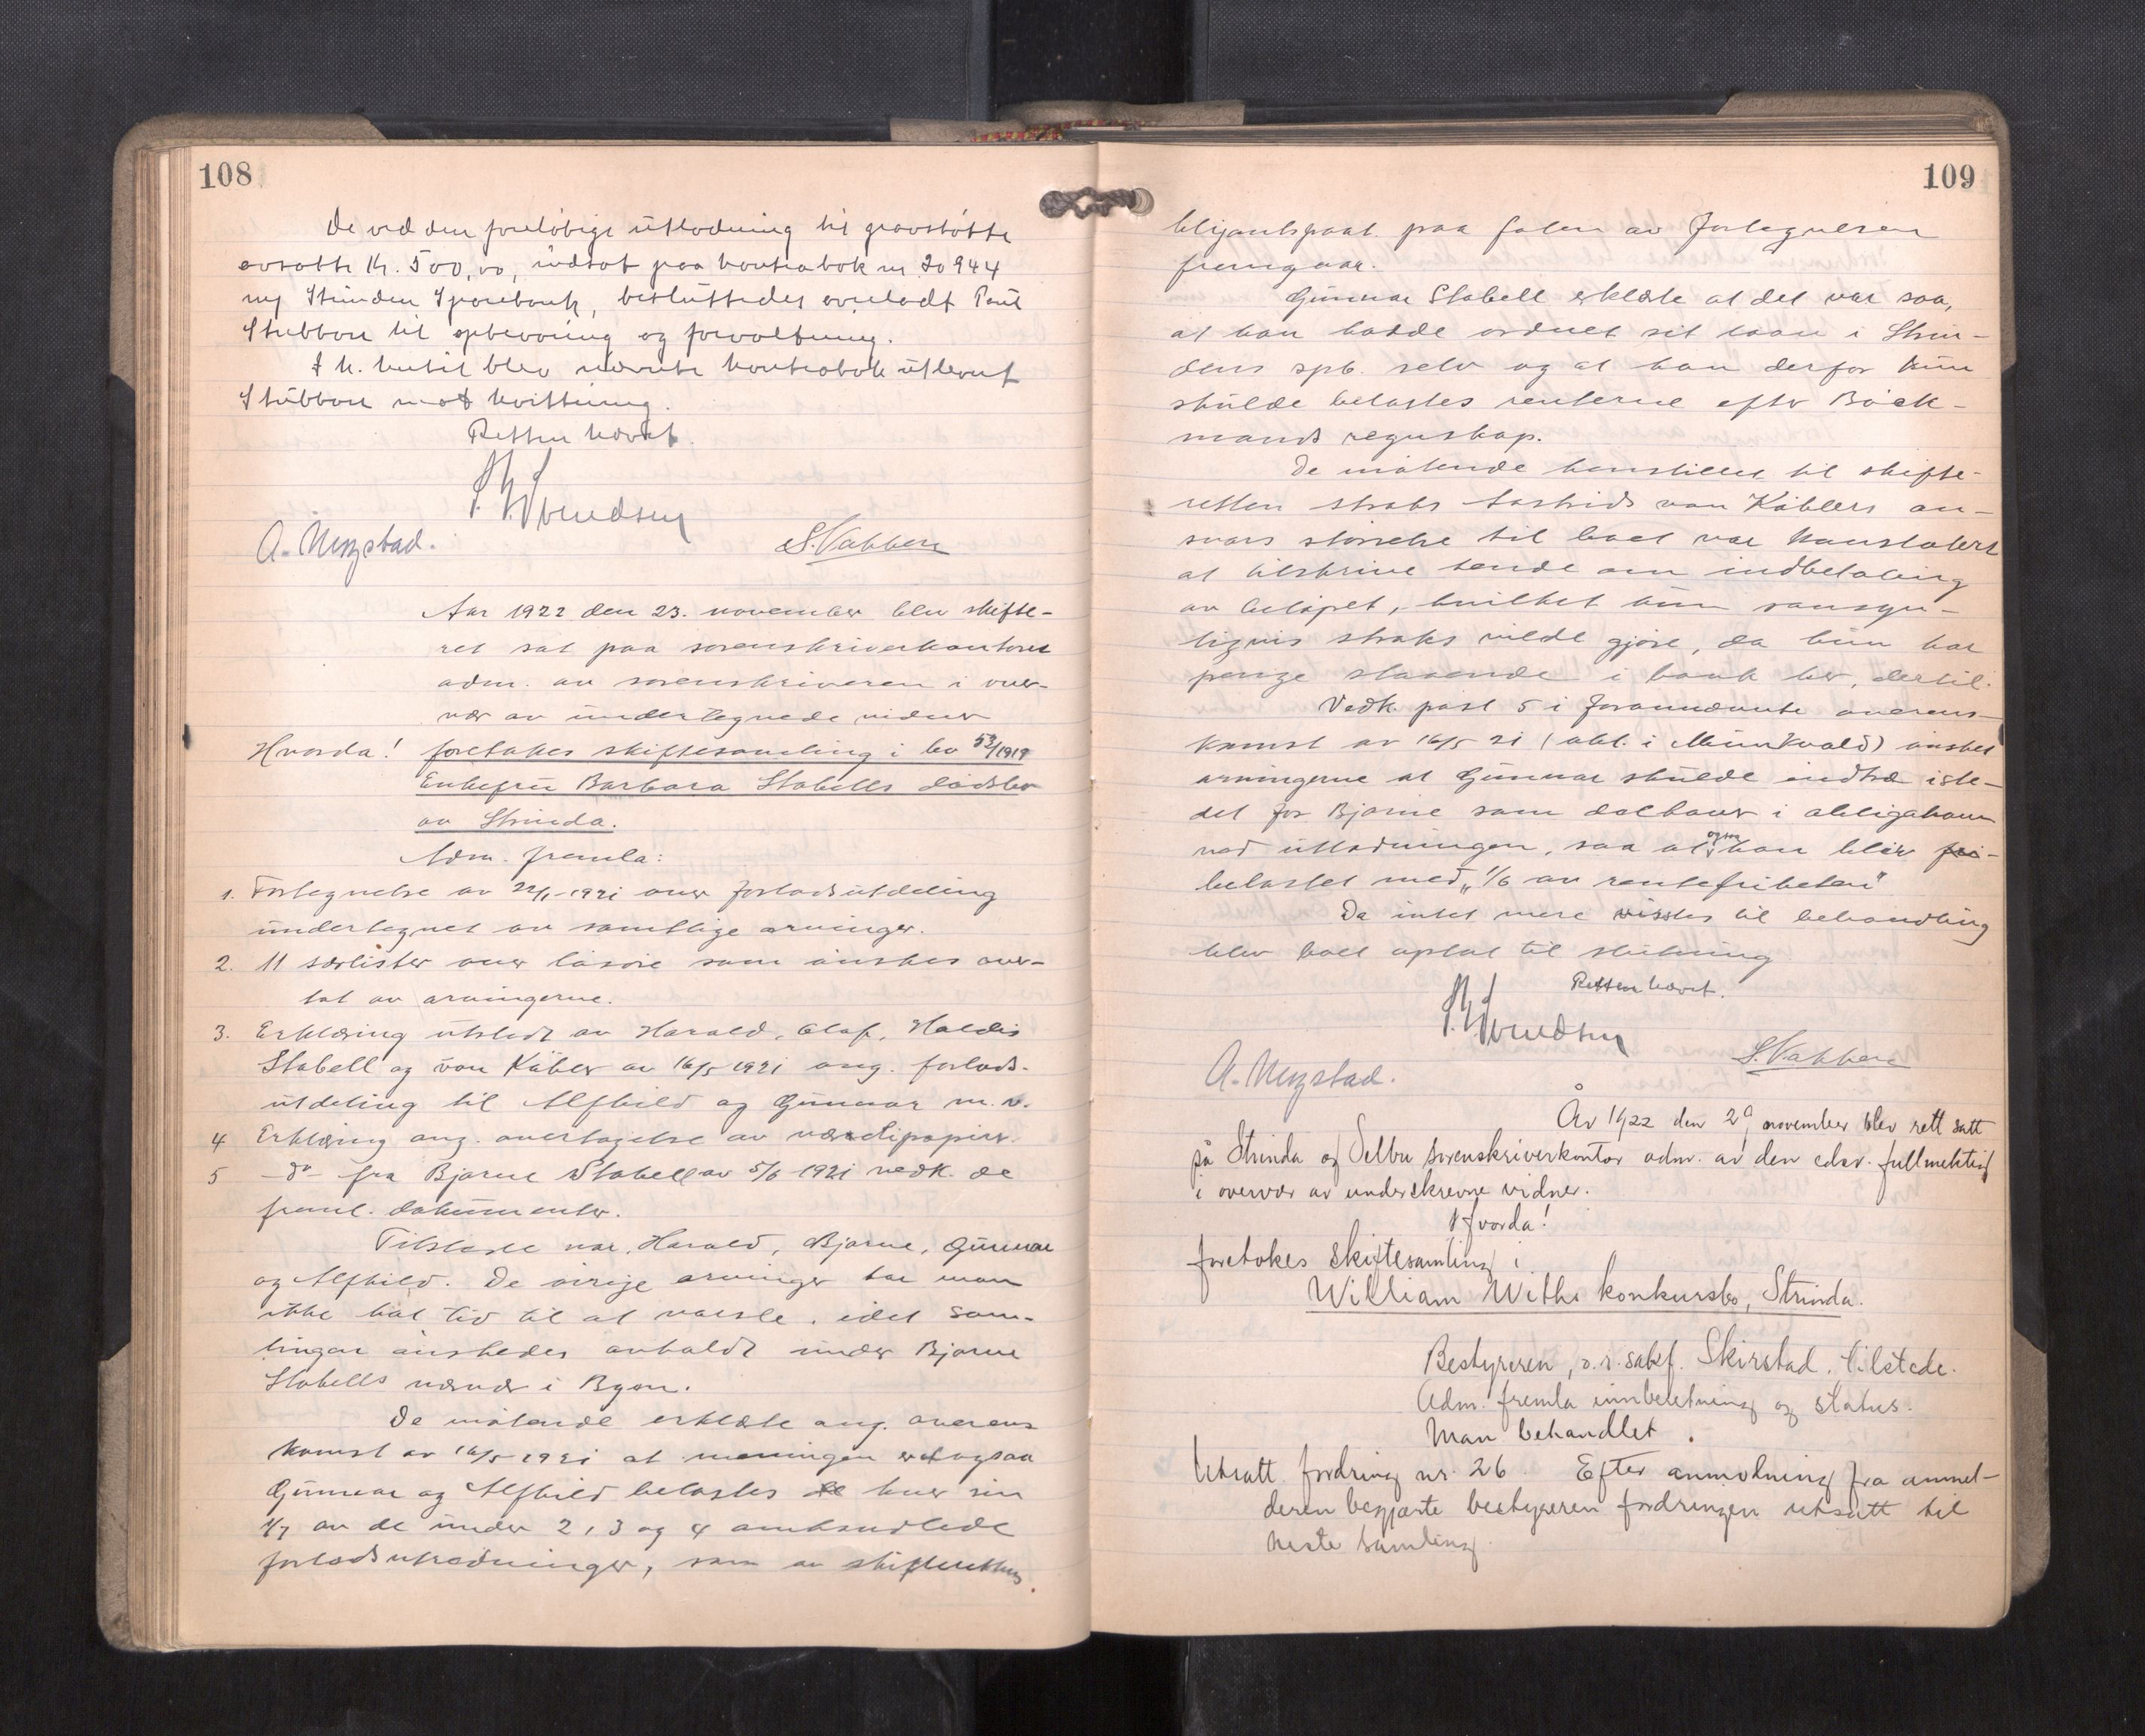 108
De ved den foreløbige utlodning til gravstøtte
avsatte Kr. 500,00, indsat paa kontrabok nr 20944
i Strinden Sparebank, besluttedes overladt Paul
Stubban til opbevaring og forvaltning.
I h. hertil blev nævnte kontrabok utlevert
Stubban mot kvittering.
Retten hævet.
A. Mengstad.
Aar 1922 den 23. november blev skifte-
ret sat paa sorenskriverkontoret
adm. av sorenskriveren i over-
vær av undertegnede vidner
Hvorda! foretokes skiftesamling i bo 53/1919
Enkefru Barbara Stabells dødsbo
av Strinda.
Adm. fremla:
1. Fortegnelse av 22/1-1921 over forlodsutdeling
undertegnet av samtlige arvinger.
2. 11 særlister over løsøre som ønskes over-
tat av arvingerne.
3. Erklæring utstedt av Harald, Olaf, Haldis
Stabell og von Køhler av 16/5 1921 ang. forlods-
utdeling til Alfhild og Gunnar m.v.
4 Erklæring ang. overtagelse av værdipapirer.
5 -do- fra Bjarne Stabell av 5/6 1921 vedk. de
freml. dokumenter.
Tilstede var Harald, Bjarne, Gunnar
og Alfhild. De øvrige arvinger har man
ikke hat tid til at varsle, idet sam-
lingen ønskedes avholdt under Bjarne
Stabells nærvær i Byen.
De møtende erklæte ang. overens
komst av 16/5-1921 at meningen er at ogsaa
Gunnar og Alfhild belastes hver sin
1/7 av de under 2, 3 og 4 omhandlede
forlodsutredninger, som av skifterettens
109
paa foten av Fortegnelsen
fremgaar.
Gunnar Stabell erklæte at det var saa,
at han hadde ordnet sit laan i Strin-
dens spb. selv og at han derfor kun
skulde belastes renterne efter Bøck-
mands regnskap.
De møtende henstillet til skifte-
retten straks Astrid von Køhlers an-
svars størrelse til boet var konstatert
at tilskrive hende om indbetaling
av beløpet, hvilket hun sansyn-
ligvis straks vilde gjøre, da hun har
penge staaende i bank her, dertil.
Vedk. post 5 i forannævnte overens-
komst av 16/5 21 (obl. i Munkvold) ønsket
arvingerne at Gunnar skulde indtræ iste-
det for Bjarne som delhaver i obligationen
ved utlodningen, saa at ogsaa han blir
belastet med "1/6 av rentefriheten"
Da intet mere vistes til behandling
blev boet optat til slutning
Retten hævet.
A. Mengstad.
År 1922 den 29 november blev rett satt
på Strinda og Selbu sorenskriverkontor adm. av den edsv. fullmektig
i overvær av underskrevne vidner.
Hvorda!
foretokes skiftesamling i
William Withs konkursbo, Strinda.
Bestyreren, o.r. sakf. Skirstad, tilstede.
Adm. fremla innberetning og status.
Man behandlet.
Utsatt fordring nr. 26. Efter anmodning fra anmel-
deren begjærte bestyreren fordringen utsatt til
neste samling